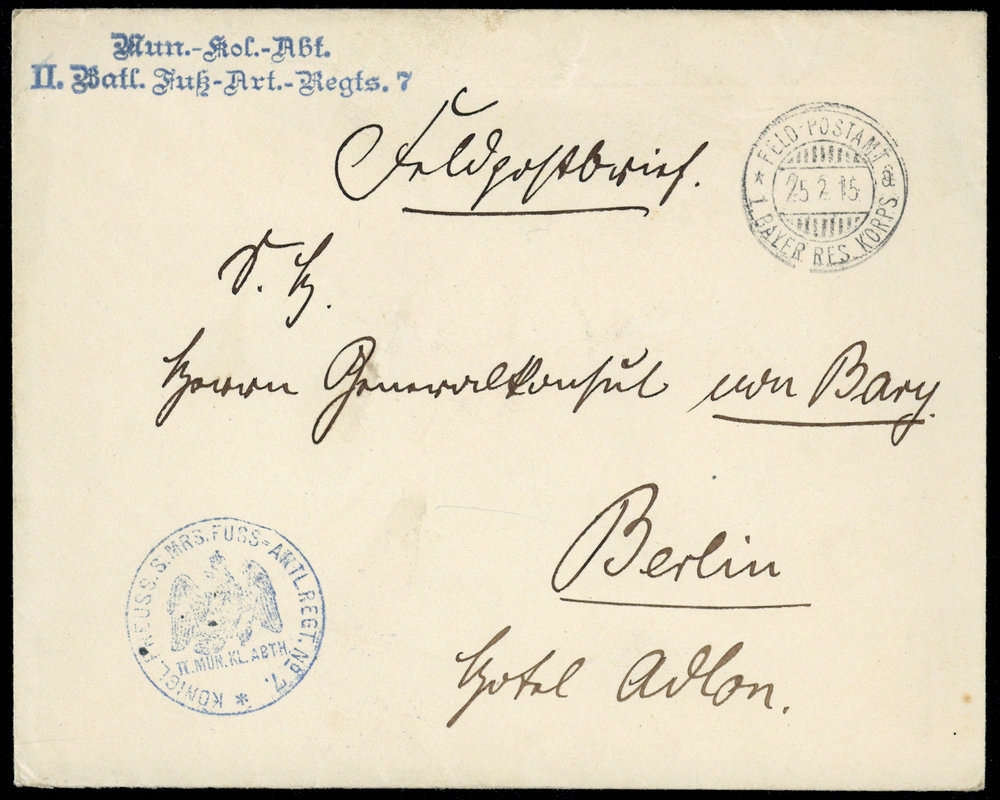 Mun.-Kol.-Abt.
II. Batl. Fuß-Art.-Regts. 7
Feldpostbrief.
* FELD-POSTAMT a
25 2 15.
1. BAYER RES. KORPS
S. H.
Herrn Generalkonsul von Bary.
Berlin
Hotel Adlon.
* KÖNIGL. PREUSS. S. MRS. FUSS=ARTL. REGT. No 7.
II. MUN. KL. ABTH.